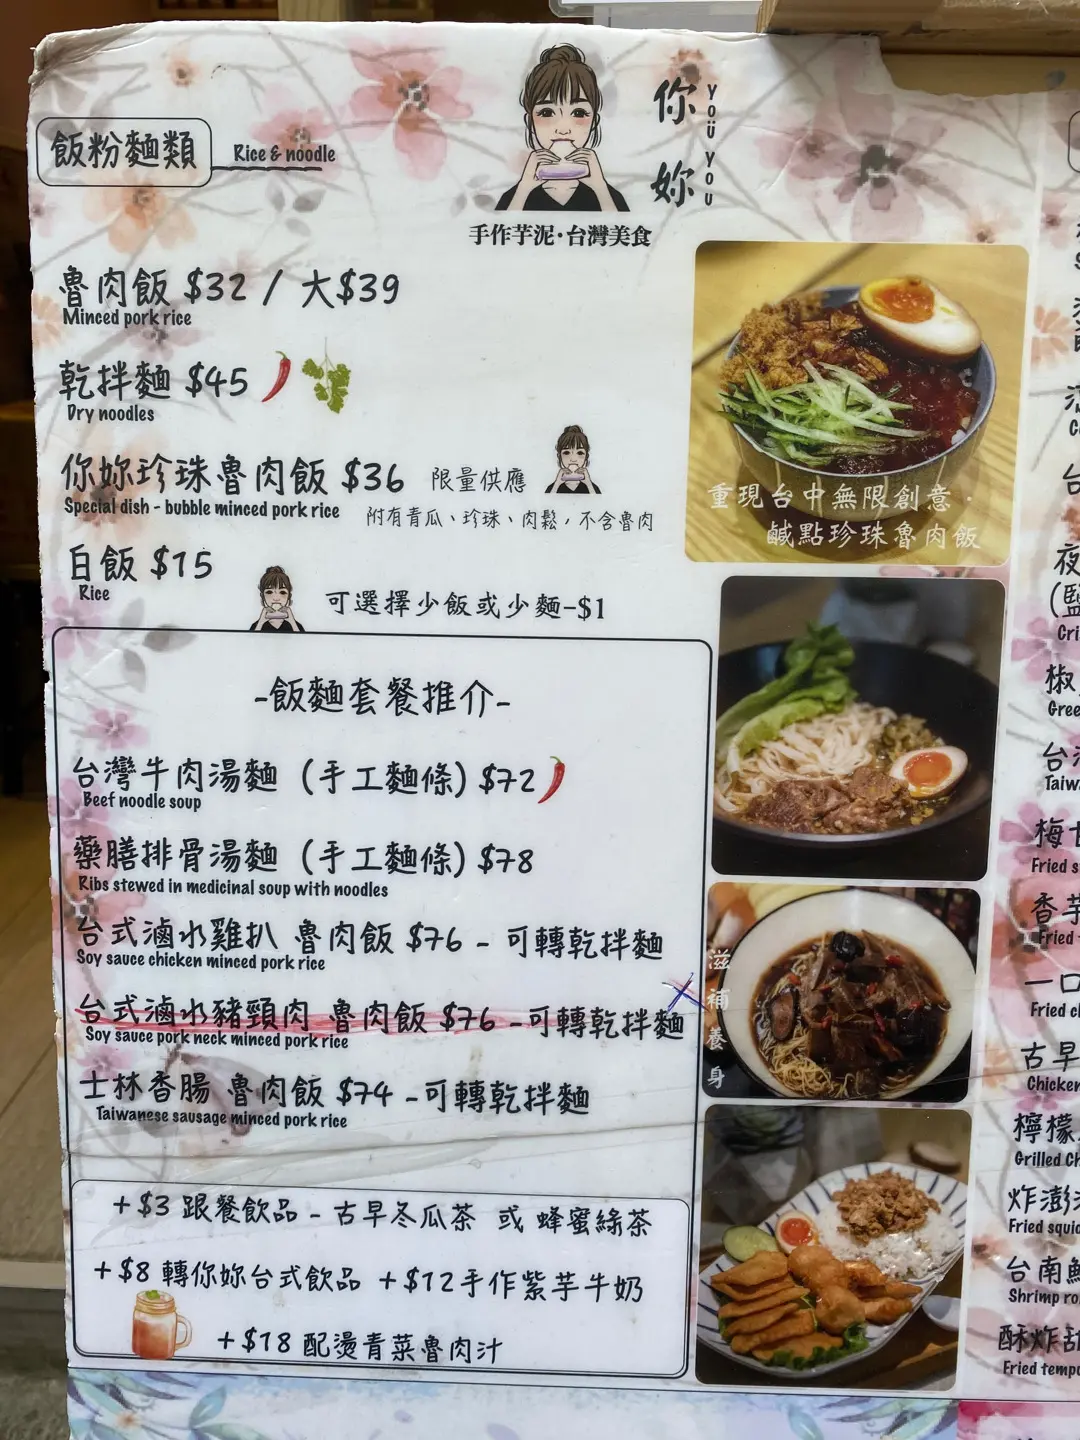 你妳
YOU YOU
手作芋泥·台灣美食
飯粉麵類 Rice & noodle
魯肉飯 $32 / 大$39
Minced pork rice
乾拌麵 $45
Dry noodles
你妳珍珠魯肉飯 $36 限量供應
Special dish - bubble minced pork rice 附有青瓜、珍珠、肉鬆,不含魯肉
白飯 $15
Rice
可選擇少飯或少麵-$1
重現台中無限創意·
鹹點珍珠魯肉飯
-飯麵套餐推介-
台灣牛肉湯麵 (手工麵條) $72
Beef noodle soup
藥膳排骨湯麵 (手工麵條) $78
Ribs stewed in medicinal soup with noodles
台式滷水雞扒 魯肉飯 $76 - 可轉乾拌麵
Soy sauce chicken minced pork rice
台式滷水豬頸肉 魯肉飯 $76 -可轉乾拌麵
Soy sauce pork neck minced pork rice
士林香腸 魯肉飯 $74 -可轉乾拌麵
Taiwanese sausage minced pork rice
滋補養身
+$3 跟餐飲品 - 古早冬瓜茶 或 蜂蜜綠茶
+$8 轉你妳台式飲品 +$12手作紫芋牛奶
+$18 配燙青菜魯肉汁
夜
Cri
椒
Gree
台
Taiw
梅
Fried s
香芋
Fried
一口
Fried c
古早
Chicken
檸檬
Grilled Ch
炸澎
Fried squi
台南
Shrimp ro
酥炸甜
Fried temp